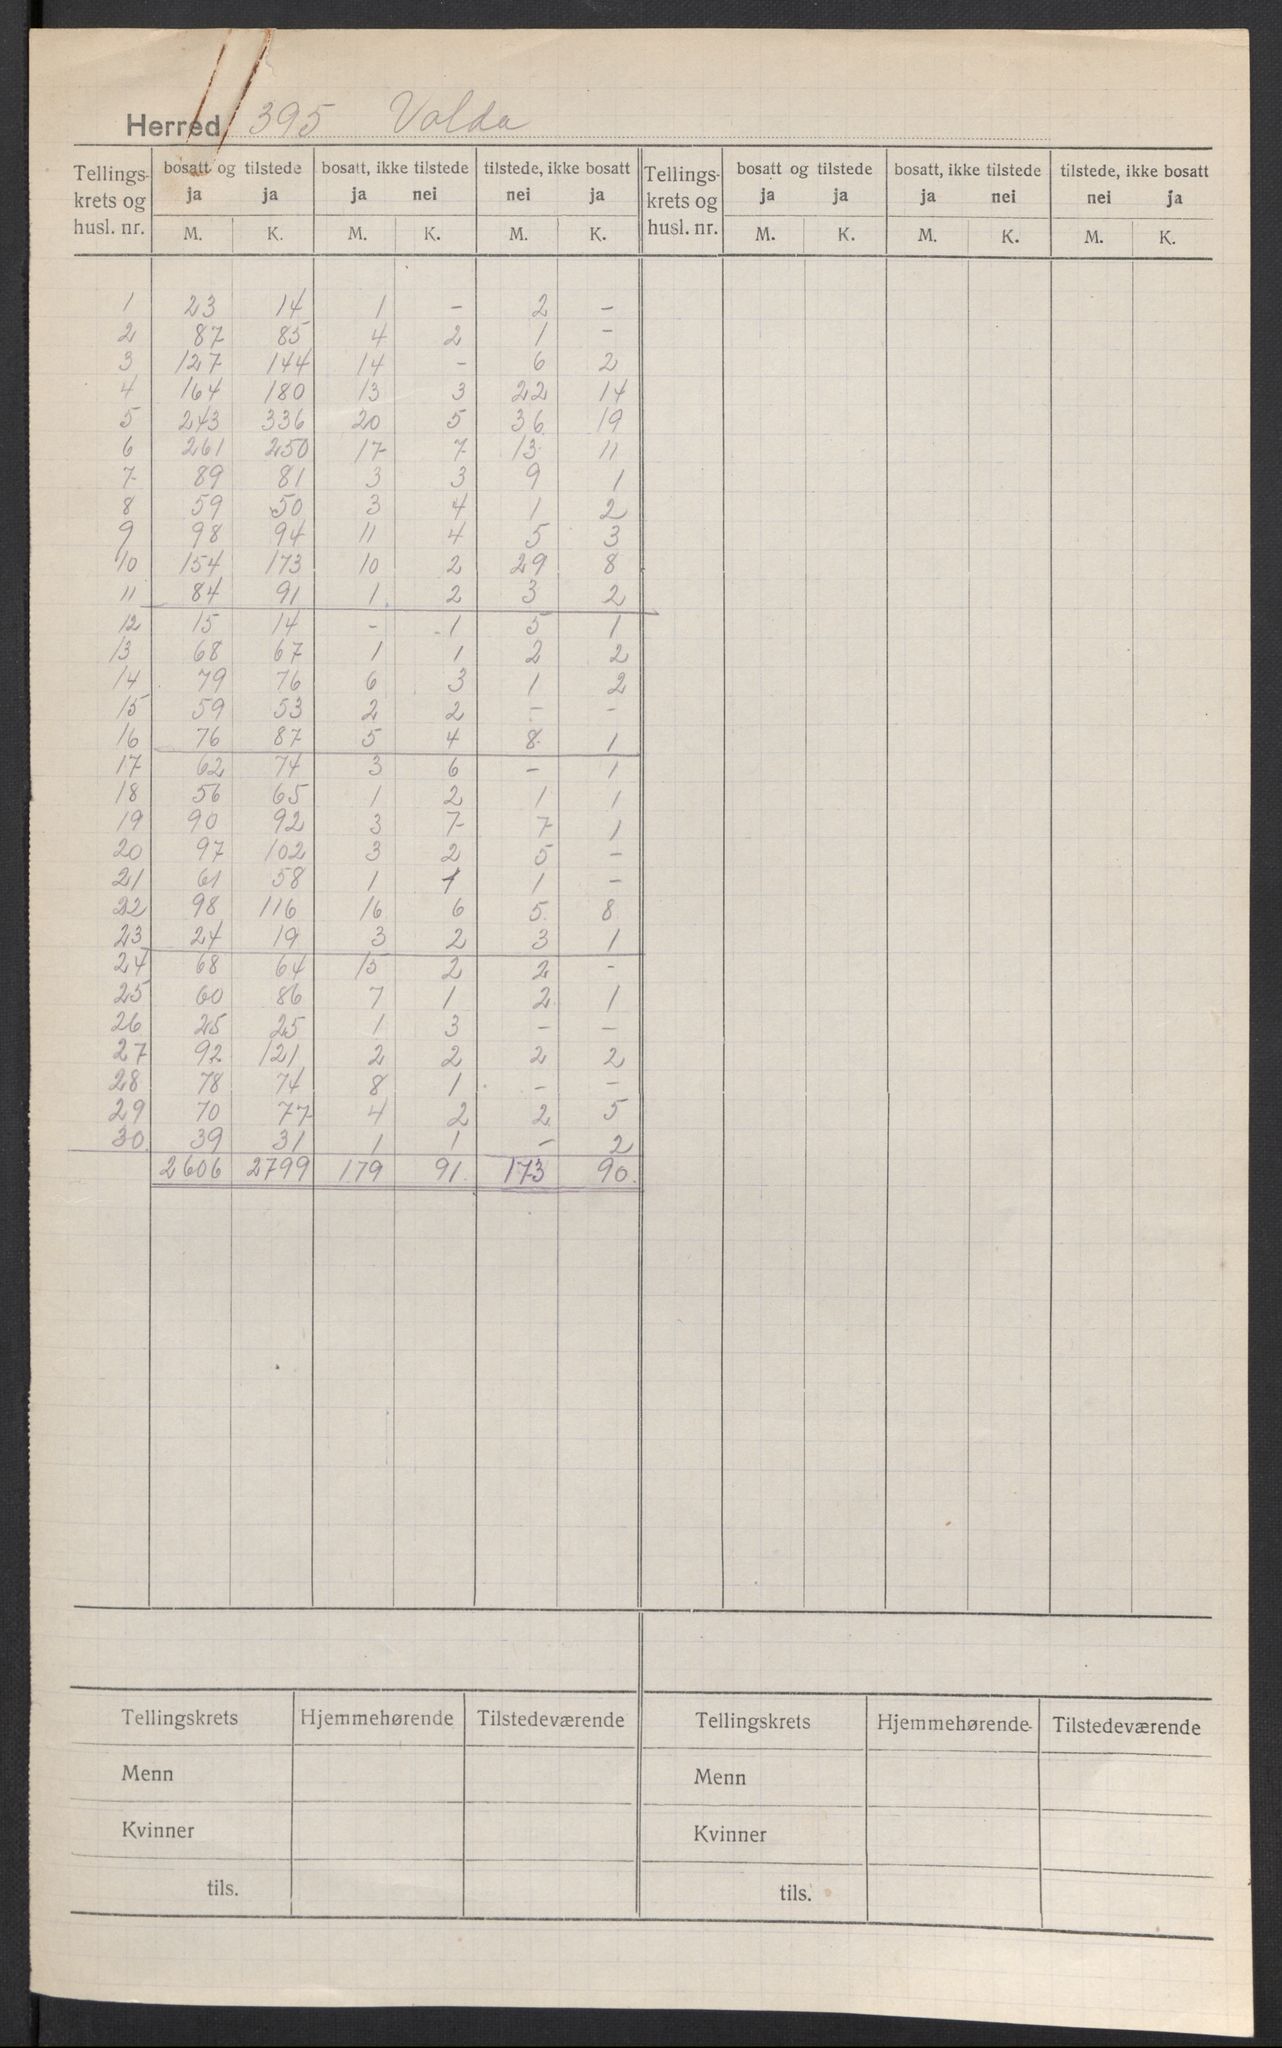 Herred 395 Volda
Tellings- krets og husl. nr. | bosatt og tilstede ja ja | bosatt, ikke tilstede ja nei | tilstede, ikke bosatt nei ja | Tellings- krets og husl. nr. | bosatt og tilstede ja ja | bosatt, ikke tilstede ja nei | tilstede, ikke bosatt nei ja
M. K. M. K. M. K. M. K. M. K. M. K.
1 23 14 1 - 2 -
2 87 85 4 2 1 -
3 127 144 14 - 6 2
4 164 180 13 3 22 14
5 243 336 20 5 36 19
6 261 250 17 7 13 11
7 89 81 3 3 9 1
8 59 50 3 4 1 2
9 98 94 11 4 5 3
10 154 173 10 2 29 8
11 84 91 1 2 3 2
12 15 14 - 1 5 1
13 68 67 1 1 2 2
14 79 76 6 3 1 2
15 59 53 2 2 - -
16 76 87 5 4 8 1
17 62 74 3 6 - 1
18 56 65 1 2 1 1
19 90 92 3 7 7 1
20 97 102 3 2 5 -
21 61 58 1 1 1 -
22 98 116 16 6 5 8
23 24 19 3 2 3 1
24 68 64 15 2 2 -
25 60 86 7 1 2 1
26 25 25 1 3 - -
27 92 121 2 2 2 2
28 78 74 8 1 - -
29 70 77 4 2 2 5
30 39 31 1 1 - 2
2606 2799 179 91 173 90
Tellingskrets Hjemmehørende Tilstedeværende Tellingskrets Hjemmehørende Tilstedeværende
Menn Menn
Kvinner Kvinner
tils. tils.